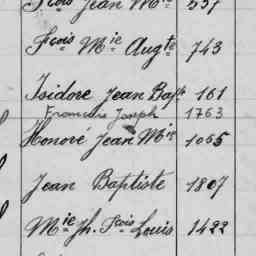 Fçois Jean Mie 557
Fçois Mie Augte 743
Isidore Jean Bapt 161
Francois Joseph 1763
Honoré Jean Mie 1065
Jean Baptiste 1807
Mie Jh. Fçois Louis 1422